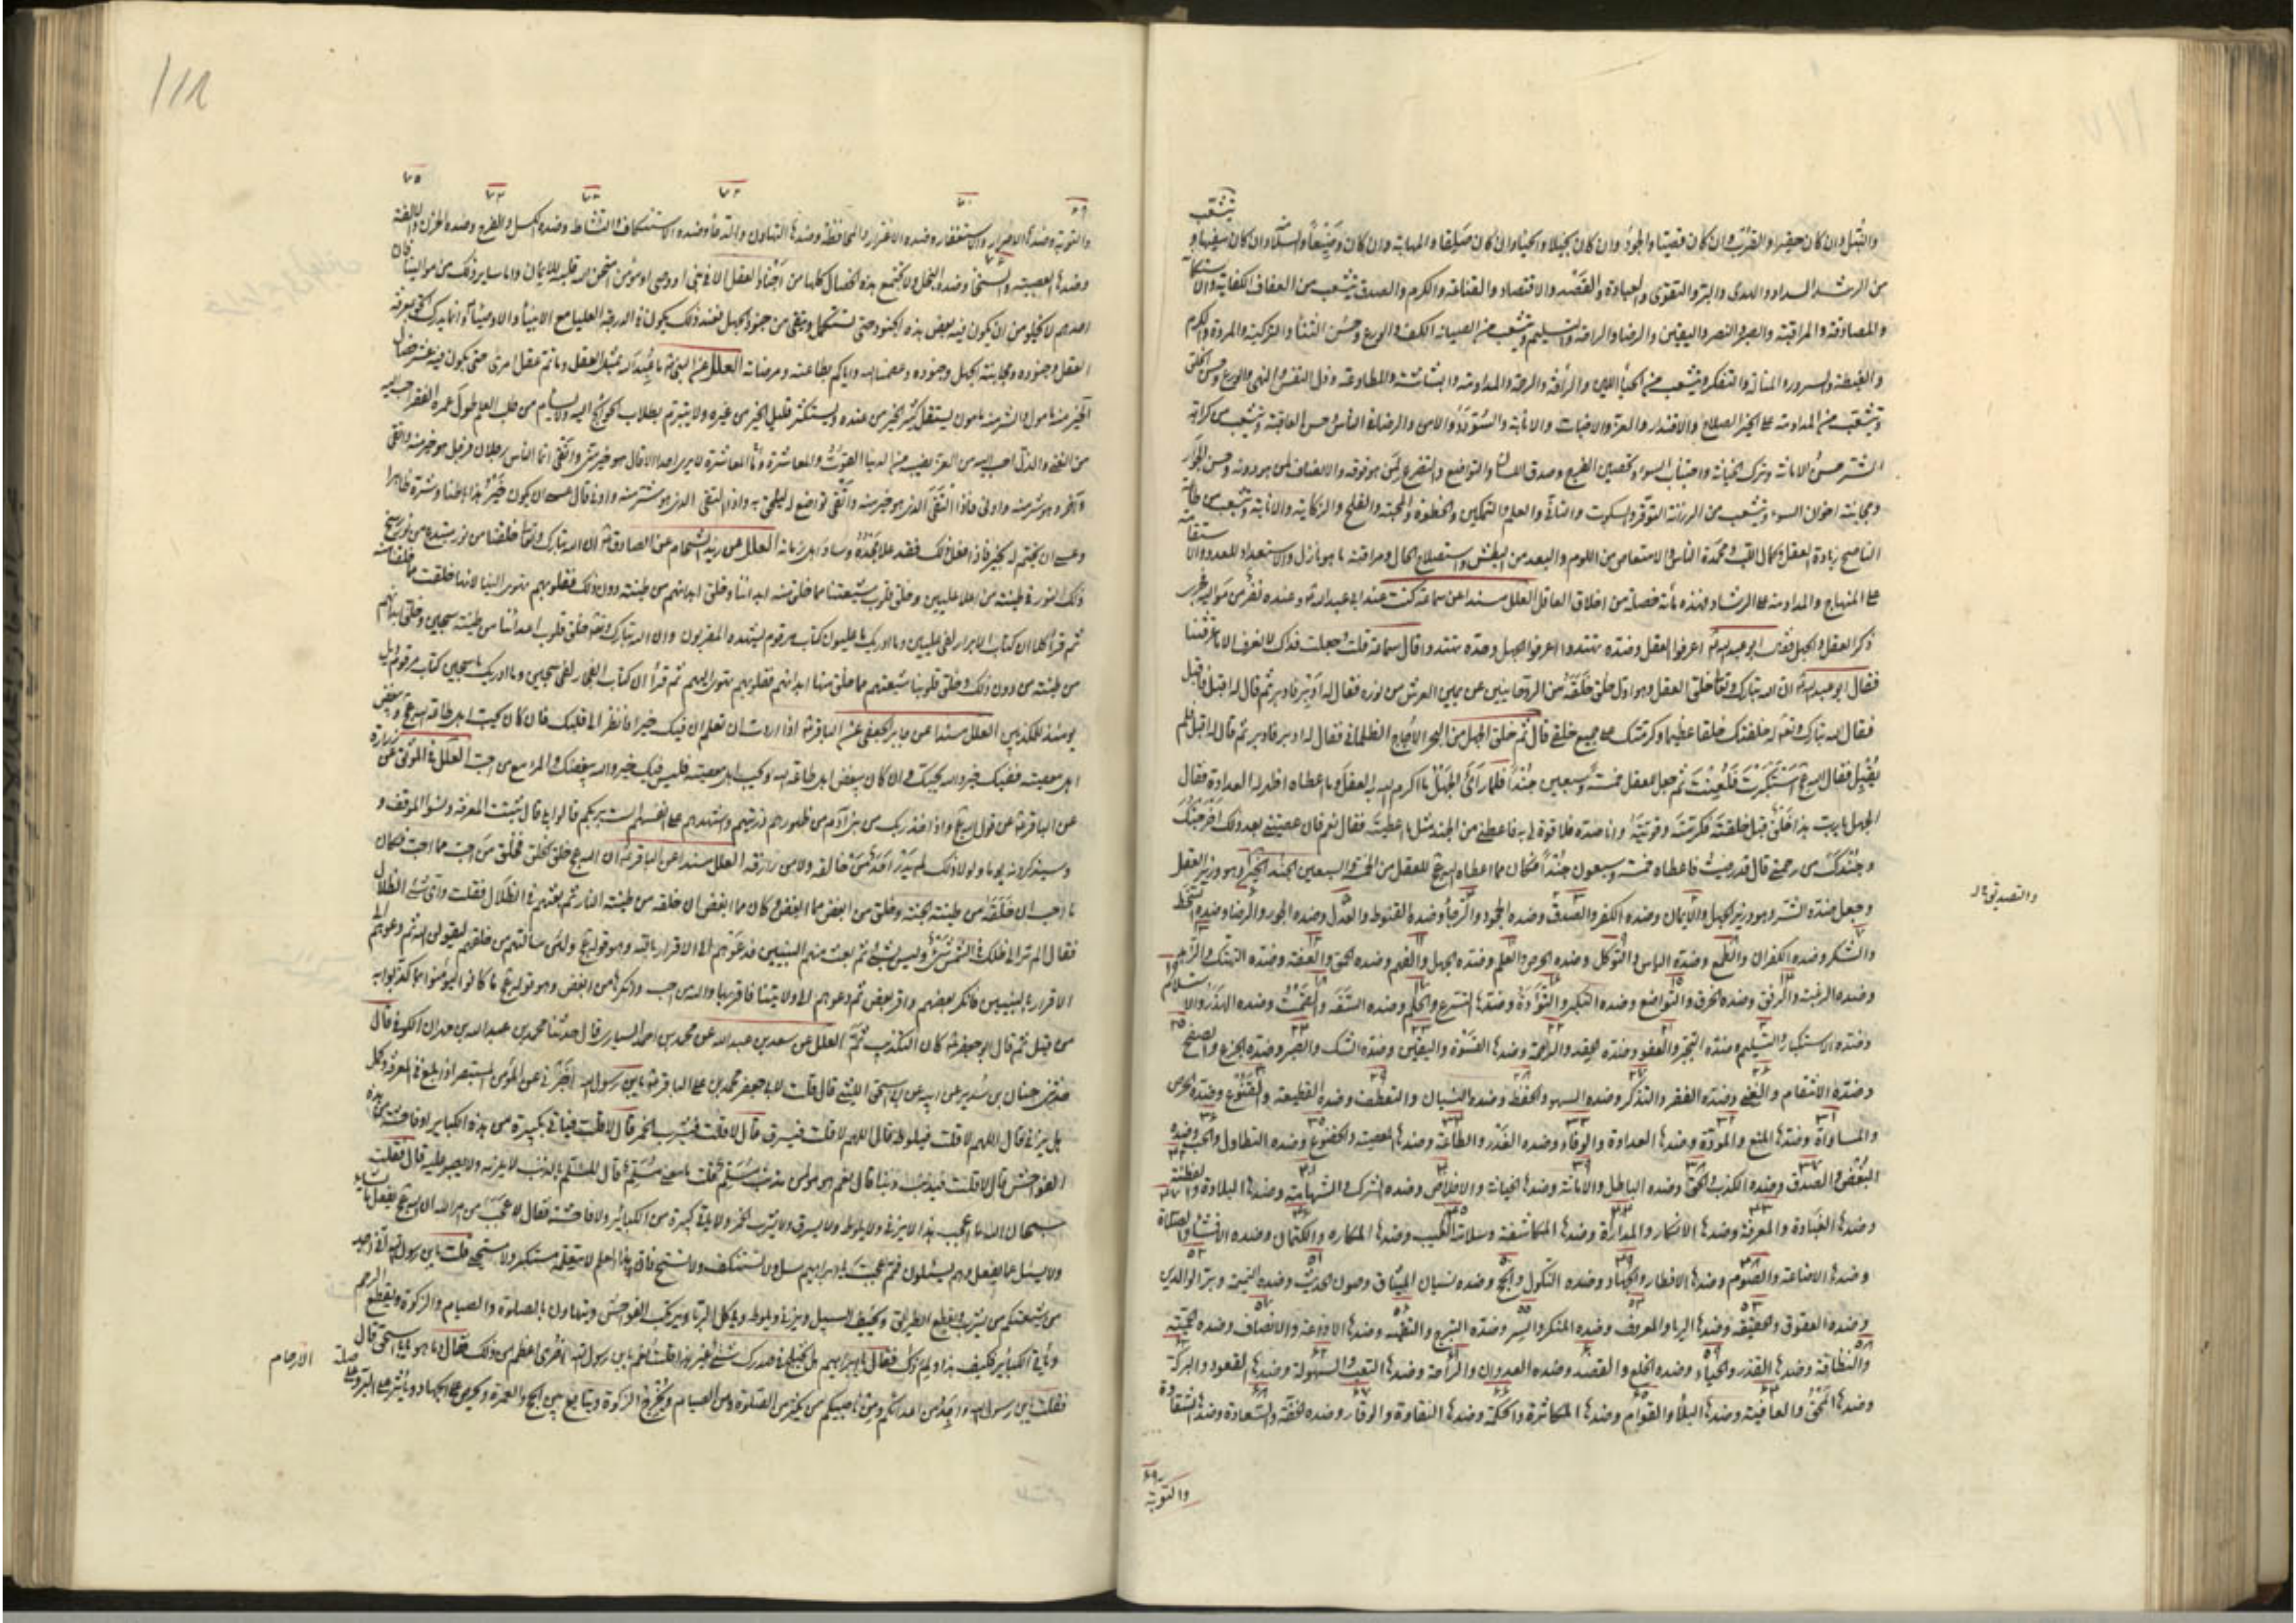 والنبل وان كان حقيرا والقرب وان كان قصيا والجود وان كان بخيلا والحياء وان كان صلفا والمهابة وان كان وضيعا والسلامة وان كان سفيها و
من الرشد السداد والهدى والبر والتقوى والعبادة والقصد والاقتصاد والقناعة والكرم والصدق يتشعب من العفاف الكفاية والاستكانة
والمصادقة والمراقبة والصبر والنصر واليقين والرضا والراحة والتسليم ويتشعب من الصيانة الكف والورع وحسن الثناء والتزكية والمروة والكرم
والغبطة والسرور والمنالة والتفكر ويتشعب من الحياء اللين والرأفة والرحمة والمداومة والبشاشة والمطاوعة وذل النفس والنهى والورع وحسن الخلق
وتتشعب من المداومة على الخير الصلاح والاقتدار والعز والاخبات والانابة والسؤدد والامن والرضا في الناس وحسن العاقبة ويتشعب من كراهة
الشر حسن الامانة وترك الخيانة واجتناب السوء وتحصين الفرج وصدق اللسان والتواضع والتضرع لمن هو فوقه والانصاف لمن هو دونه وحسن الجوار
ومجانبة اخوان السوء ويتشعب من الرزانة التوقر والسكوت والتأني والعلم والتمكين والحظوة والمحبة والفلج والزكاية والانابة ويتشعب من طاعة
الناصح زيادة العقل وكمال اللب ومحمدة الناس والامتعاض من اللوم والبعد من البطش واستصلاح الحال ومراقبة ما هو نازل والاستعداد للعدو والاستقامة
على المنهاج والمداومة على الرشاد فهذه مأة خصلة من اخلاق العاقل العلل مسندا عن سماعة كنت عند ابي عبد الله ع وعنده نفر من مواليه فجرى
ذكر العقل والجهل فقال ابو عبد الله ع اعرفوا العقل وجنده تهتدوا واعرفوا الجهل وجنده تهتدوا قال سماعة قلت جعلت فداك لا نعرف الا ما عرفتنا
فقال ابو عبد الله ع ان الله تبارك وتعالى خلق العقل وهو اول خلق خلقه من الروحانيين عن يمين العرش من نوره فقال له ادبر فادبر ثم قال له اقبل فاقبل
فقال الله تبارك وتعالى له خلقتك خلقا عظيما وكرمتك على جميع خلقي قال ثم خلق الجهل من البحر الاجاج الظلماني فقال له ادبر فادبر ثم قال له اقبل فلم
يقبل فقال الله عج استكبرت فلعنت ثم جعل للعقل خمسة وسبعين جندا فلما رأى الجهل ما اكرم الله به العقل وما اعطاه اظهر له العداوة فقال
الجهل يا رب هذا خلق مثلي خلقته فكرمته وقويته وانا ضده فلا قوة لي به فاعطني من الجند مثل ما اعطيته فقال نعم فان عصيتني بعد ذلك اخرجتك
وجندك من رحمتي قال قد رضيت فاعطاه خمسة وسبعون جندا فكان مما اعطاه الله عج للعقل من الخمسة والسبعين الجند الخير وهو وزير العقل
وجعل ضده الشر وهو وزير الجهل والايمان وضده الكفر والصدق وضده الجحود والرجاء وضده القنوط والعدل وضده الجور والرضا وضده السخط
والتصديق
والشكر وضده الكفران والطمع وضده الياس والتوكل وضده الحرص والعلم وضده الجهل والفهم وضده الحمق والعفة وضده التهتك والزهد
وضده الرغبة والرفق وضده الخرق والتواضع وضده التكبر والتؤدة وضدها التسرع والحلم وضده السفه والصمت وضده الهذر والاستسلام
وضده الاستكبار والتسليم وضده التجبر والعفو وضده الحقد والرحمة وضدها القسوة واليقين وضده الشك والصبر وضده الجزع والصفح
وضده الانتقام والغنى وضده الفقر والتذكر وضده السهو والحفظ وضده النسيان والتعطف وضده القطيعة والقنوع وضده الحرص
والمساواة وضدها المنع والمودة وضدها العداوة والوفاء وضده الغدر والطاعة وضدها المعصية والخضوع وضده التطاول والحب وضده
البغض والصدق وضده الكذب والحق وضده الباطل والامانة وضدها الخيانة والاخلاص وضده الشرك والشهامة وضدها البلادة والفطنة
وضدها الغباوة والمعرفة وضدها الانكار والمداراة وضدها المكاشفة وسلامة الغيب وضدها المماكره والكتمان وضده الافشاء والصلاة
وضدها الاضاعة والصوم وضدها الافطار والجهاد وضده النكول والحج وضده نسيان الميثاق وصون الحديث وضده النميمة وبر الوالدين
وضده العقوق والحقيقة وضدها الرياء والمعروف وضده المنكر والستر وضده التبرج والتقية وضدها الاذاعة والانصاف وضده الحمية
والنظافة وضدها القذر والحياء وضده الخلع والقصد وضده العدوان والراحة وضدها التعب والسهولة وضدها الصعوبة والبركة
وضدها المحق والعافية وضدها البلاء والقوام وضدها المكاثرة والحكمة وضدها النقاوة والوقار وضده الخفة والسعادة وضدها الشقاوة
والتوبة
111
والتوبة وضدها الاصرار والاستغفار وضده الاغترار والمحافظة وضدها التهاون والدعاء وضده الاستنكاف والنشاط وضده الكسل والفرح وضده الحزن والالفة
وضدها العصبية والسخاء وضده البخل ولا تجتمع هذه الخصال كلها من اجناد العقل الا في نبي او وصي او مؤمن امتحن الله قلبه للايمان واما ساير ذلك من موالينا فان
احدهم لا يخلو من ان يكون فيه بعض هذه الجنود حتى يستكمل وينقى من جنود الجهل فعند ذلك يكون في الدرجة العليا مع الانبياء والاوصياء وانما يدرك الحق بمعرفة
العقل وجنوده ومجانبة الجهل وجنوده وعصمنا الله واياكم بطاعته ومرضاته العلل عن النبي ص ما عبد الله بمثل العقل وما تم عقل امرئ حتى يكون فيه عشر خصال
الخير منه مأمول والشر منه مأمون يستقل كثير الخير من عنده ويستكثر قليل الخير من غيره ولا يتبرم بطلاب الحوائج اليه ولا يسأم من طلب العلم طول عمره الفقر احب اليه
من الغنى والذل احب اليه من العز نصيبه من الدنيا القوت والعاشرة وما العاشرة لا يرى احدا الا قال هو خير مني واتقى انما الناس رجلان فرجل هو خير منه واتقى
وآخر هو شر منه وادنى فاذا التقى الذي هو خير منه واتقى تواضع له ليلحق به واذا التقى الذي هو شر منه وادنى قال عسى ان يكون خير هذا باطنا وشره ظاهرا
وعسى ان يختم له بخير فاذا فعل ذلك فقد علا مجده وساد اهل زمانه العلل عن زيد الشحام عن الصادق ع ان الله تبارك وتعالى خلقنا من نور مبتدع من نور رسخ
ذلك النور في طينة من اعلا عليين وخلق قلوب شيعتنا مما خلق منه ابداننا وخلق ابدانهم من طينة دون ذلك فقلوبهم تهوى الينا لانها خلقت مما خلقنا منه
ثم قرأ كلا ان كتاب الابرار لفي عليين وما ادريك ما عليون كتاب مرقوم يشهده المقربون وان الله تبارك وتعالى خلق قلوب اعدائنا من طينة سجين وخلق ابدانهم
من طينة من دون ذلك وخلق قلوب شيعتهم مما خلق منها ابدانهم فقلوبهم تهوى اليهم ثم قرأ ان كتاب الفجار لفي سجين وما ادريك ما سجين كتاب مرقوم ويل
يومئذ للمكذبين العلل مسندا عن جابر الجعفي عن الباقر ع اذا اردت ان تعلم ان فيك خيرا فانظر الى قلبك فان كان يحب اهل طاعة الله عج ويبغض
اهل معصيته ففيك خير والله يحبك وان كان يبغض اهل طاعة الله ويحب اهل معصيته فليس فيك خير والله يبغضك والمرء مع من احب العلل في الموثق عن زرارة
عن الباقر ع عن قول الله عج واذ اخذ ربك من بني آدم من ظهورهم ذريتهم واشهدهم على انفسهم الست بربكم قالوا بلى قال ثبتت المعرفة ونسوا الموقف و
سيذكرونه يوما ولولا ذلك لم يدر احد من خالقه ولا من رازقه العلل مسندا عن الباقر ع ان الله عج خلق الخلق فخلق من احب مما احب فكان
ما احب ان خلقه من طينة الجنة وخلق من ابغض مما ابغض وكان ما ابغض ان خلقه من طينة النار ثم بعثهم في الظلال فقلت واى شئ الظلال
فقال الم تر الى ظلك في الشمس شئ وليس بشئ ثم بعث منهم النبيين فدعوهم الى الاقرار بالله وهو قوله عج ولئن سالتهم من خلقهم ليقولن الله ثم دعوهم الى
الاقرار بالنبيين فانكر بعضهم واقر بعض ثم دعوهم الى ولايتنا فاقر بها والله من احب وانكرها من ابغض وهو قوله عج ما كانوا ليؤمنوا بما كذبوا به
من قبل ثم قال ابو جعفر ع كان التكذيب ثم العلل عن سعد بن عبد الله عن محمد بن احمد السياري قال حدثنا محمد بن عبد الله بن مهران الكوفي قال
حدثني حنان بن سدير عن ابيه عن ابي اسحق الليثي قال قلت لابي جعفر محمد بن علي الباقر ع يا بن رسول الله اخبرني عن المؤمن المستبصر اذا بلغ في المعرفة وكمل
هل يزني قال اللهم لا قلت فيلوط قال اللهم لا قلت فيسرق قال لا قلت فيشرب الخمر قال لا قلت فيأتي بكبيرة من هذه الكباير او فاحشة من هذه
الفواحش قال لا قلت فيذنب ذنبا قال نعم هو مؤمن مذنب مسلم قلت ما معنى مسلم قال المسلم بالذنب لا يلزمه ولا يصير عليه قال فقلت
سبحان الله ما اعجب هذا لا يزني ولا يلوط ولا يسرق ولا يشرب الخمر ولا يأتي كبيرة من الكبائر ولا فاحشة فقال لا عجب من امر الله ان الله عج يفعل ما يشاء
ولا يسئل عما يفعل وهم يسئلون فمم عجبت يا ابراهيم سل ولا تستنكف ولا تستح فان هذا العلم لا يتعلمه مستكبر ولا مستحي قلت يا بن رسول الله اني اجد
من شيعتكم من يشرب ويقطع الطريق ويخيف السبيل ويزني ويلوط ويأكل الربا ويرتكب الفواحش ويتهاون بالصلوة والصيام والزكوة ويقطع الرحم
ويأتي الكباير فكيف هذا ولم ذاك فقال يا ابراهيم هل يختلج في صدرك شئ غير هذا قلت نعم يا بن رسول الله اخرى اعظم من ذلك فقال وما هو يا ابا اسحق قال
فقلت يا بن رسول الله واجد من اعدائكم ومن ناصبيكم من يكثر من الصلوة ومن الصيام ويخرج الزكوة ويتابع بين الحج والعمرة ويحرص على الجهاد ويأثر على البر وعلى
صلة الارحام